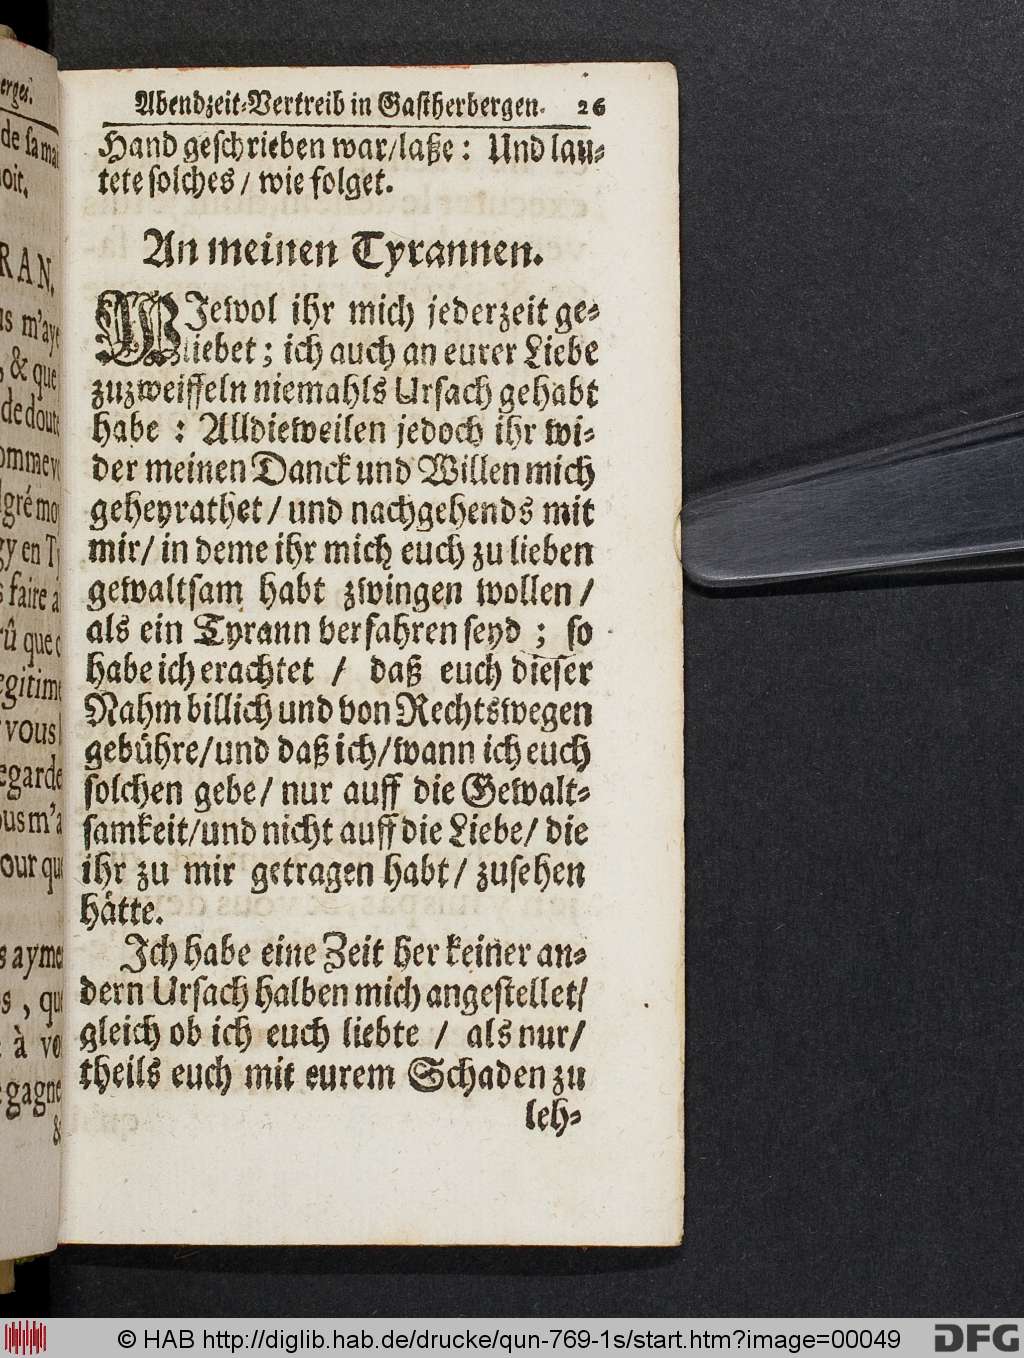 erges.
de sa mai
oit,
RAN.
us m'aye
, & que
de doute
omme vo
lgré mo
gy en Ty
s faire a
rû que c
egitime
vous
egarde
ous m'a
our que
s ayme
s, que
à vo
gagne
&
Abendzeit-Vertreib in Gastherbergen. 26
Hand geschrieben war/laße: Und lau-
tete solches / wie folget.
An meinen Tyrannen.
WIewol ihr mich jederzeit ge-
liebet; ich auch an eurer Liebe
zuzweiffeln niemahls Ursach gehabt
habe : Alldieweilen jedoch ihr wi-
der meinen Danck und Willen mich
geheyrathet / und nachgehends mit
mir/ in deme ihr mich euch zu lieben
gewaltsam habt zwingen wollen /
als ein Tyrann verfahren seyd ; so
habe ich erachtet / daß euch dieser
Nahm billich und von Rechtswegen
gebühre/und daß ich/wann ich euch
solchen gebe/ nur auff die Gewalt-
samkeit/und nicht auff die Liebe/ die
ihr zu mir getragen habt/ zusehen
hätte.
Ich habe eine Zeit her keiner an-
dern Ursach halben mich angestellet/
gleich ob ich euch liebte / als nur/
theils euch mit eurem Schaden zu
leh-
© HAB http://diglib.hab.de/drucke/qun-769-1s/start.htm?image=00049
DFG